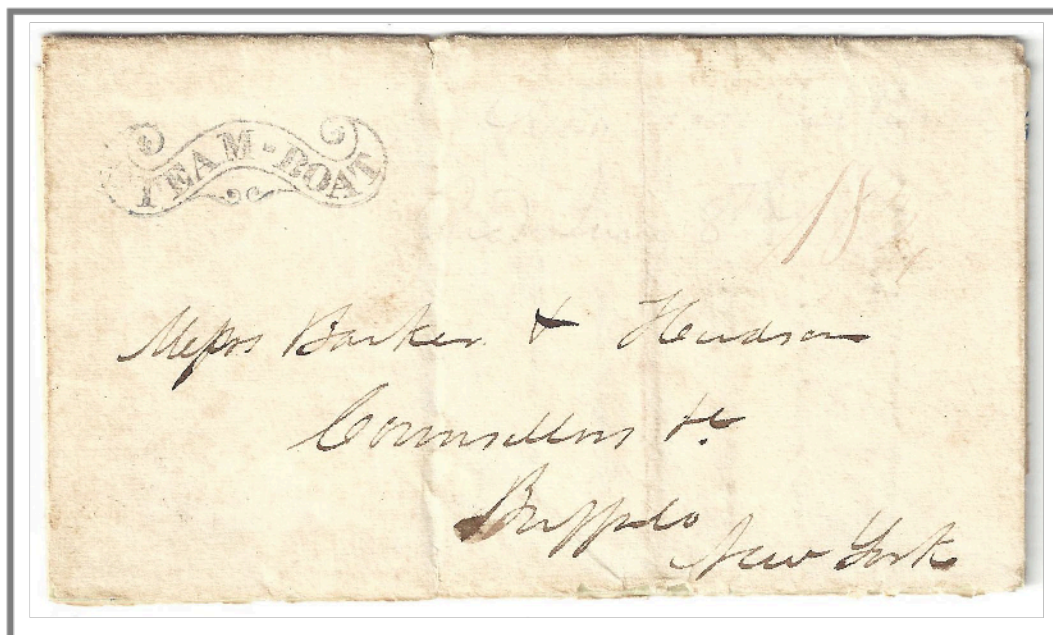 STEAM-BOAT
18 3/4
Messrs Barker & Hudson
Counsellors &c
Buffalo
New York